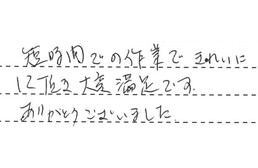 短時間での作業できれいに
大変満足です。
ありがとうございました。